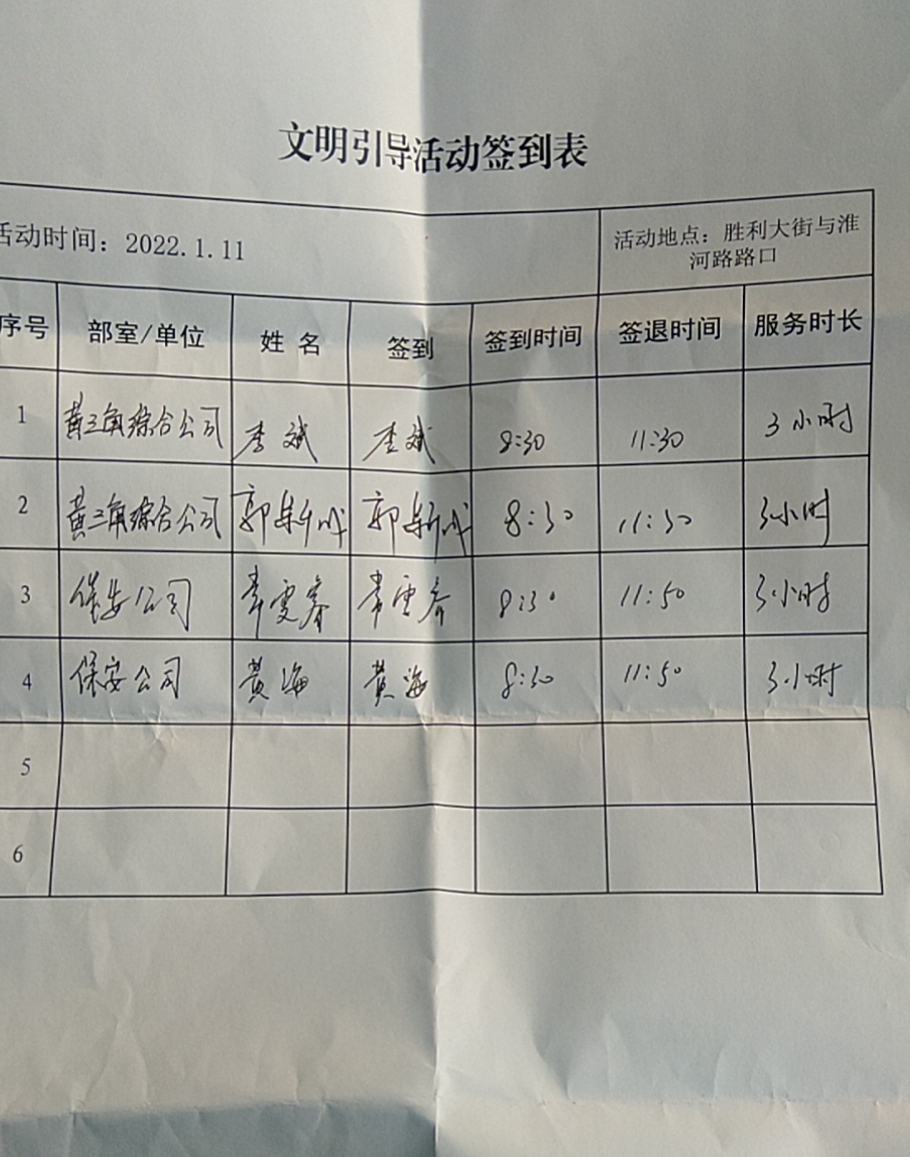 文明引导活动签到表
活动时间：2022.1.11
活动地点：胜利大街与淮
河路路口
序号 部室/单位 姓 名 签到 签到时间 签退时间 服务时长
1 黄三角综合公司 李斌 李斌 8:30 11:30 3小时
2 黄三角综合公司 郭新 郭新 8:30 11:30 3小时
3 保安公司 8:30 11:50 3小时
4 保安公司 黄海 黄海 8:30 11:50 3小时
5
6